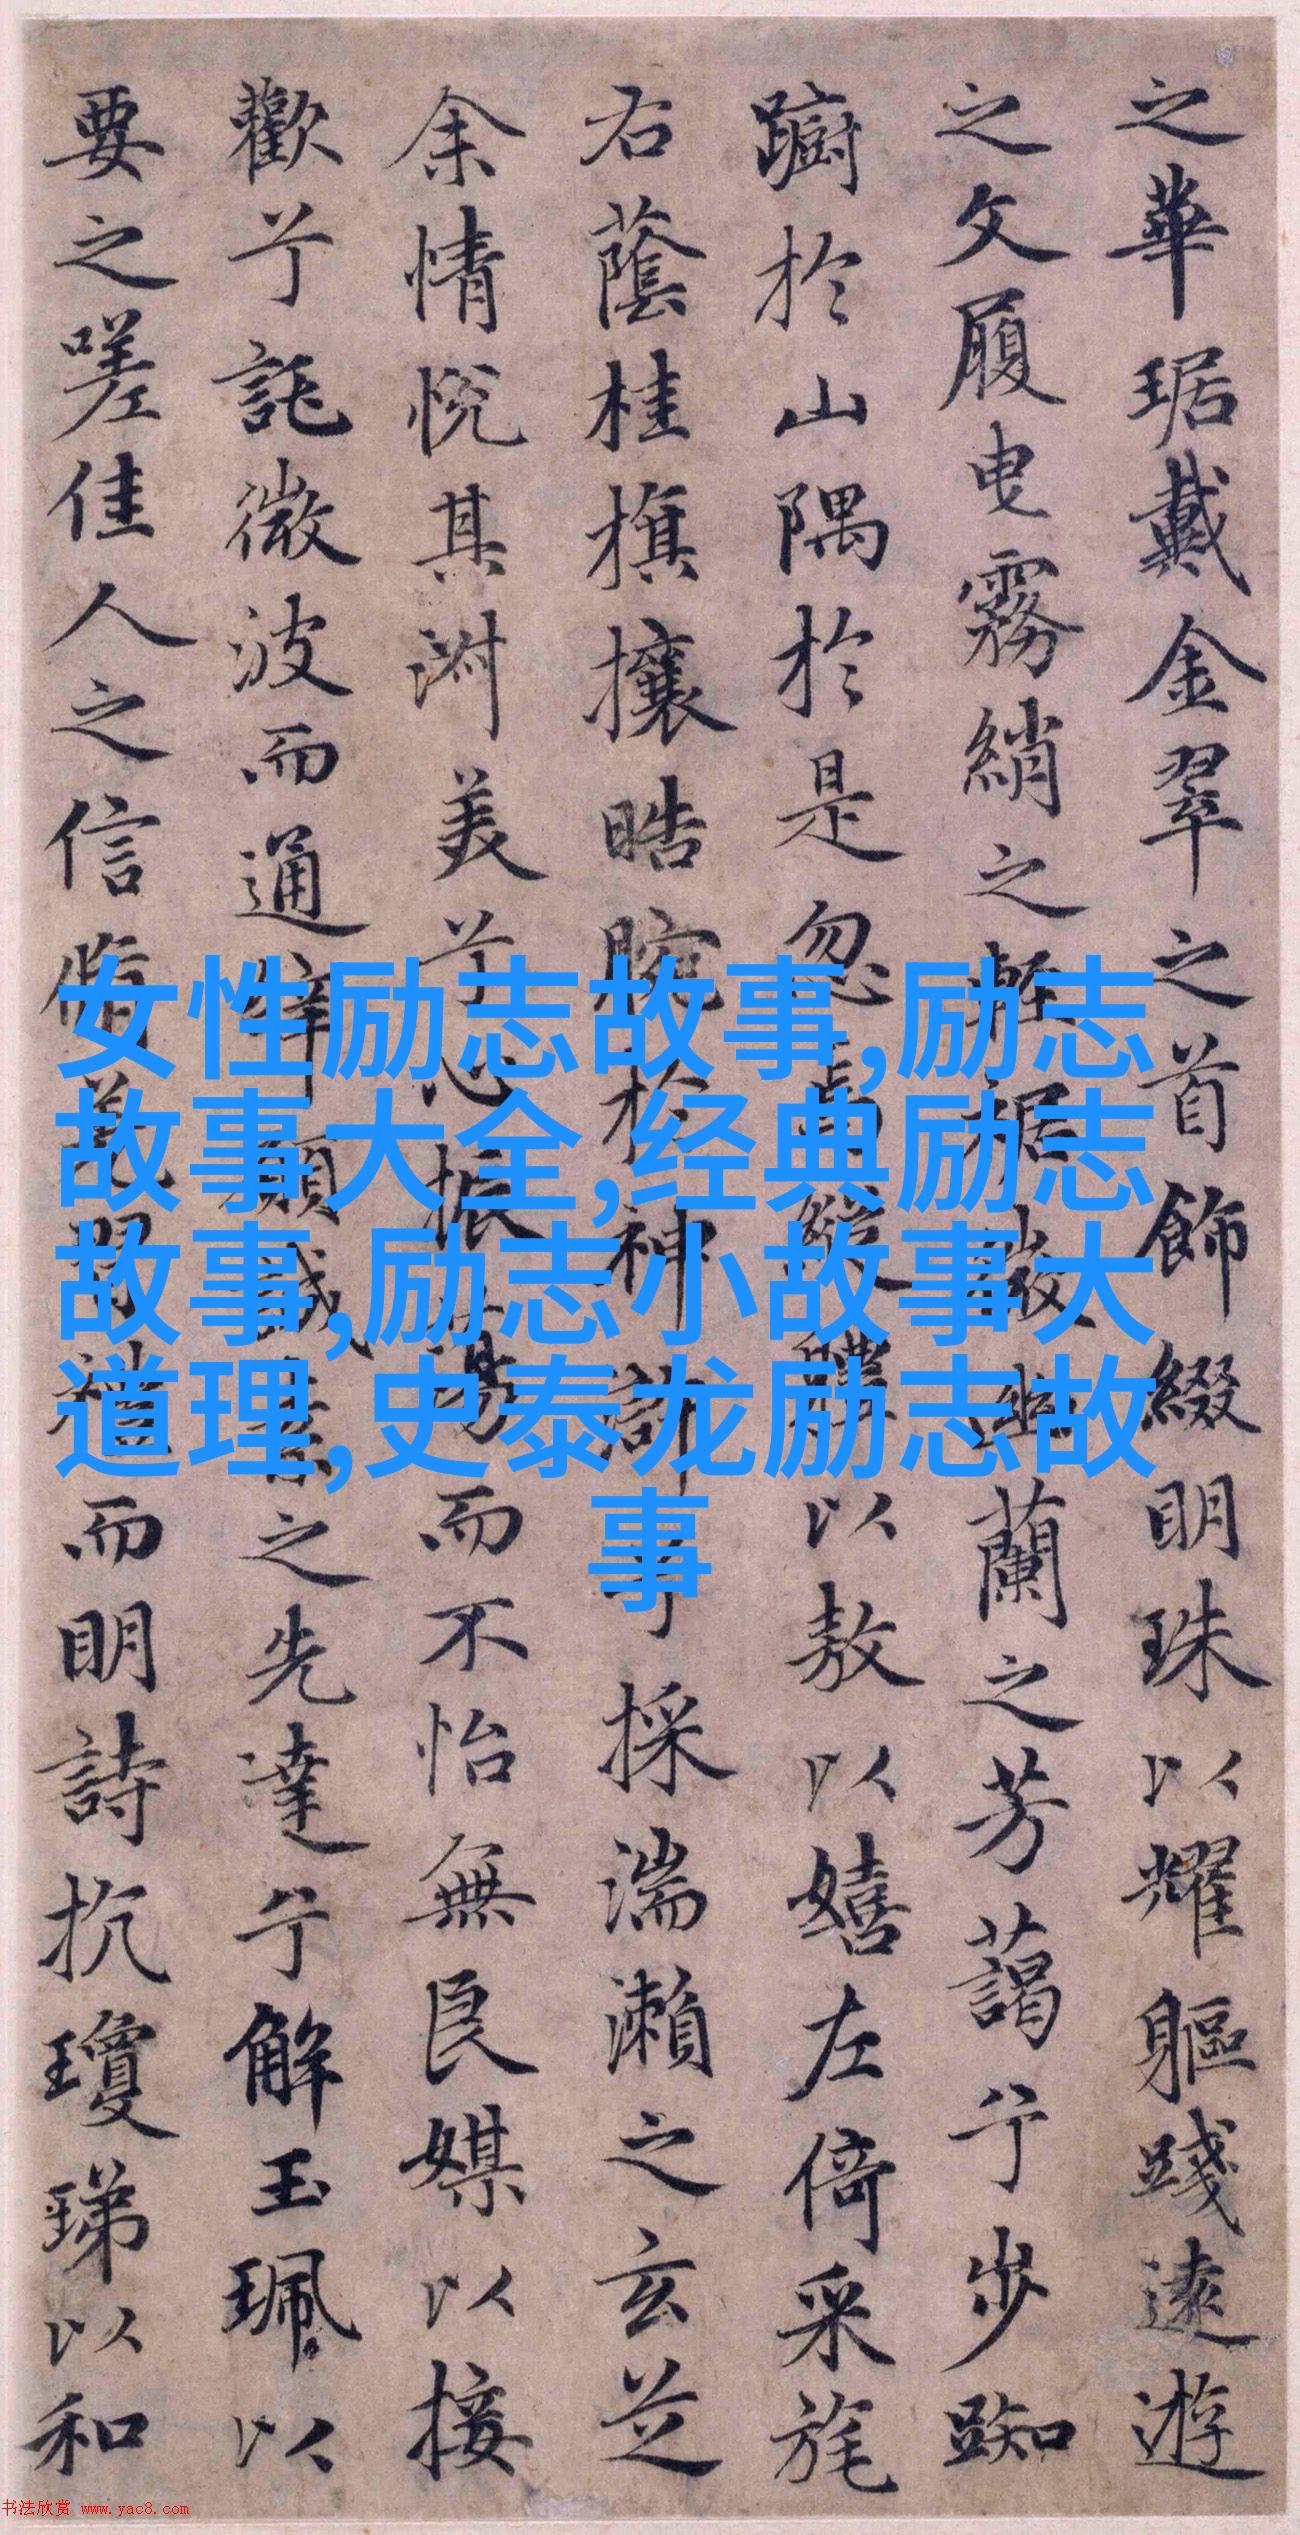 之華琚戴金翠之首飾綴明珠以耀軀踐遠遊
之文履曳霧綃之輕裾微幽蘭之芳藹兮步踟
躕於山隅於是忽焉縱體以敖以嬉左倚采旄
右蔭桂旗攘晧腕於神滸兮採湍瀨之玄芝
余情悅其淑美兮心振蕩而不怡無良媒以接
歡兮託微波而通辭願誠素之先達兮解玉珮以
要之嗟佳人之信脩羌習禮而明詩抗瓊珶以和
女性励志故事,励志
故事大全,经典励志
故事,励志小故事大
道理,史泰龙励志故
事
书法欣赏 www.yac8.com